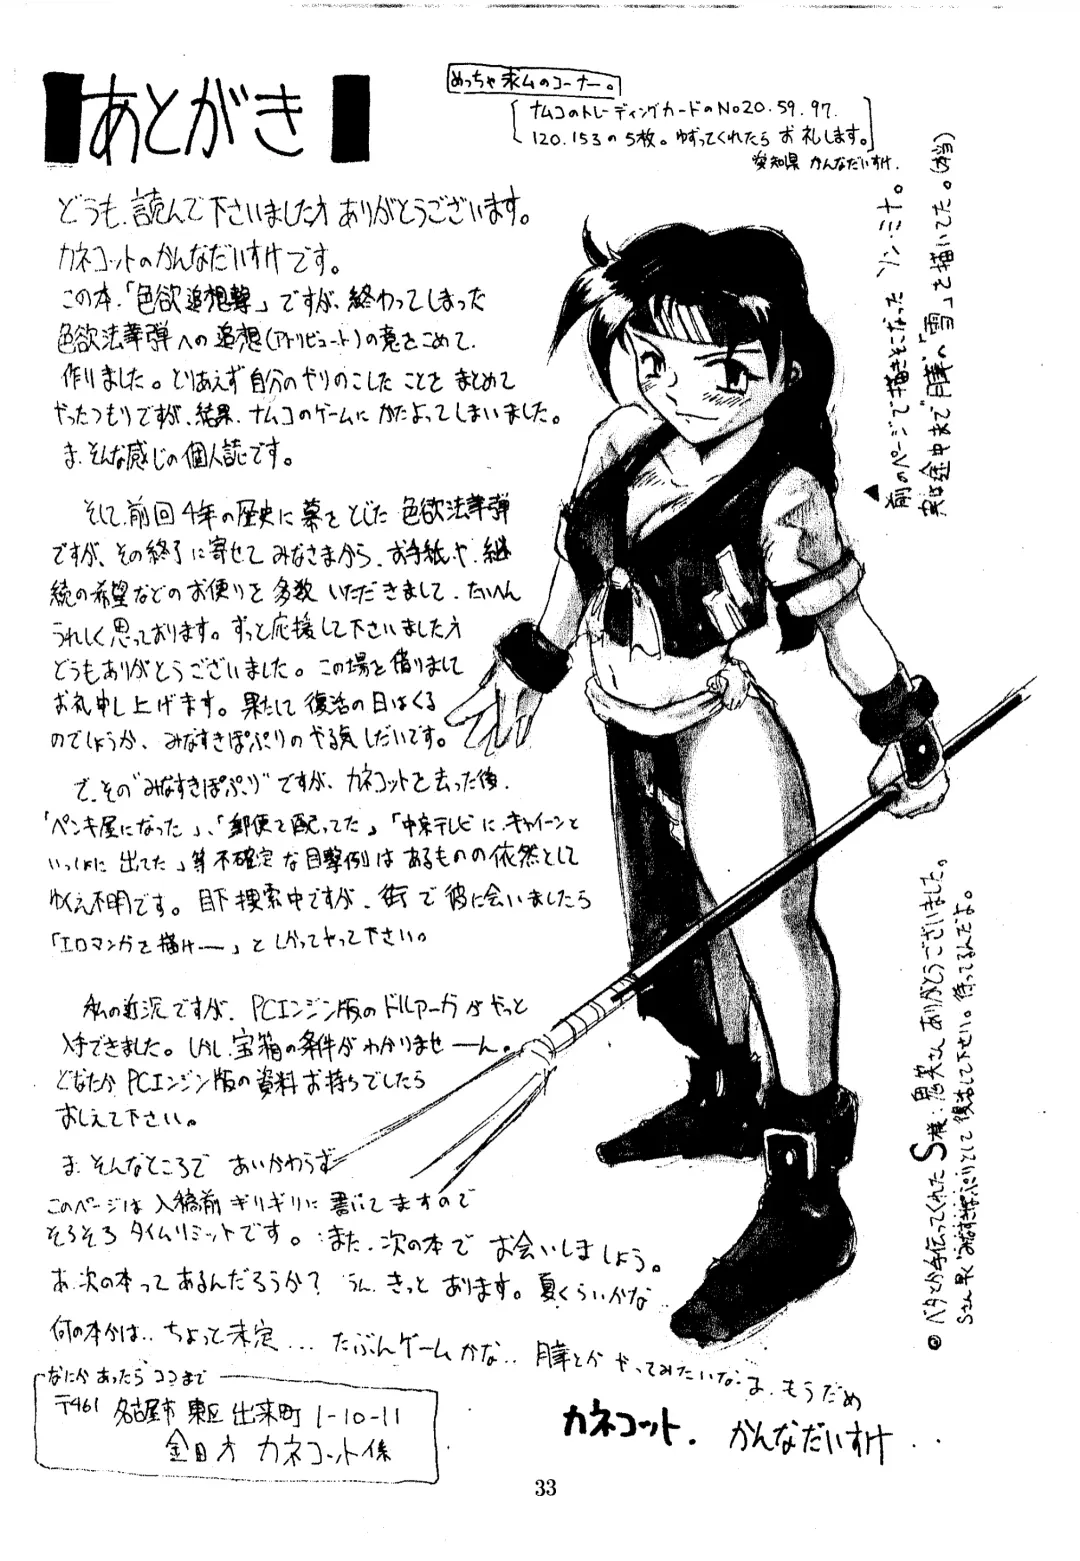 あとがき
めっちゃ求ムのコーナー。
ナムコのトレーディングカードのNo20.59.97.
120.153の5枚。ゆずってくれたら お礼します。
愛知県 かんなだいすけ.
どうも、読んで下さいました方 ありがとうございます。
カネコットのかんなだいすけです。
この本、「色欲追想撃」ですが、終わってしまった
色欲法華弾への追想(アトリビュート)の意をこめて、
作りました。とりあえず自分のやりのこしたことをまとめて
やったつもりですが、結果、ナムコのゲームにかたよってしまいました。
ま、そんな感じの個人誌です。
そして、前回4年の歴史に幕をとじた 色欲法華弾
ですが、その終了に寄せて みなさまから、お手紙や、継
続の希望などのお便りを 多数 いただきまして、たいへん
うれしく思っております。ずっと応援して下さいました方
どうもありがとうございました。この場を借りまして
お礼申し上げます。果たして 復活の日はくる
のでしょうか、みなすきぽぷりのやる気しだいです。
で、その"みなすきぽぷり"ですが、カネコットを去った後、
「ペンキ屋になった」、「郵便を配ってた」「中京テレビに、キャイーンと
いっしょに 出てた」等 不確定な目撃例は あるものの 依然として
ゆくえ不明です。目下 捜索中ですが、街で 彼に会いましたら
「エロマンガを描けー」と しかってやって下さい。
私の近況ですが、PCエンジン版の ドルアーガ がやっと
入手できました。しかし、宝箱の条件が わかりませーん。
どなたか PCエンジン版の資料 お持ちでしたら
おしえて下さい。
ま、そんなところで あいかわらず
このページは 入稿前 ギリギリに 書いてますので
そろそろ タイムリミットです。また、次の本で お会いしましょう。
あ、次の本って あるんだろうか? うん、きっと おります。夏くらいかな..
何の本かは.. ちょっと未定... たぶんゲームかな..
やってみたいな.. ま、もうだめ
カネコット. かんなだいすけ...
なにか あったら ココまで
〒461 名古屋市 東区 出来町 1-10-11
金田方 カネコット係
▲前のページで描きそこなった ソン・ミナ。
実は途中まで"膵へ「雪」を描いてた。(本当)
◎ベタとか手伝ってくれた S様、恵美さん ありがとうございました。
Sさん 早く"みなすきぽぷり"として 復活して下さい。待ってるんだよ。
33